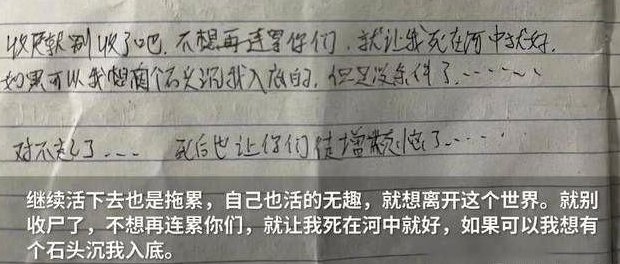 收尸就别收了吧，不想再连累你们，就让我死在河中就好，
如果可以我想有个石头沉我入底的，但是没条件了……
对不起了…… 死后也让你们徒增烦恼了……
继续活下去也是拖累，自己也活的无趣，就想离开这个世界。就别
收尸了，不想再连累你们，就让我死在河中就好，如果可以我想有
个石头沉我入底。